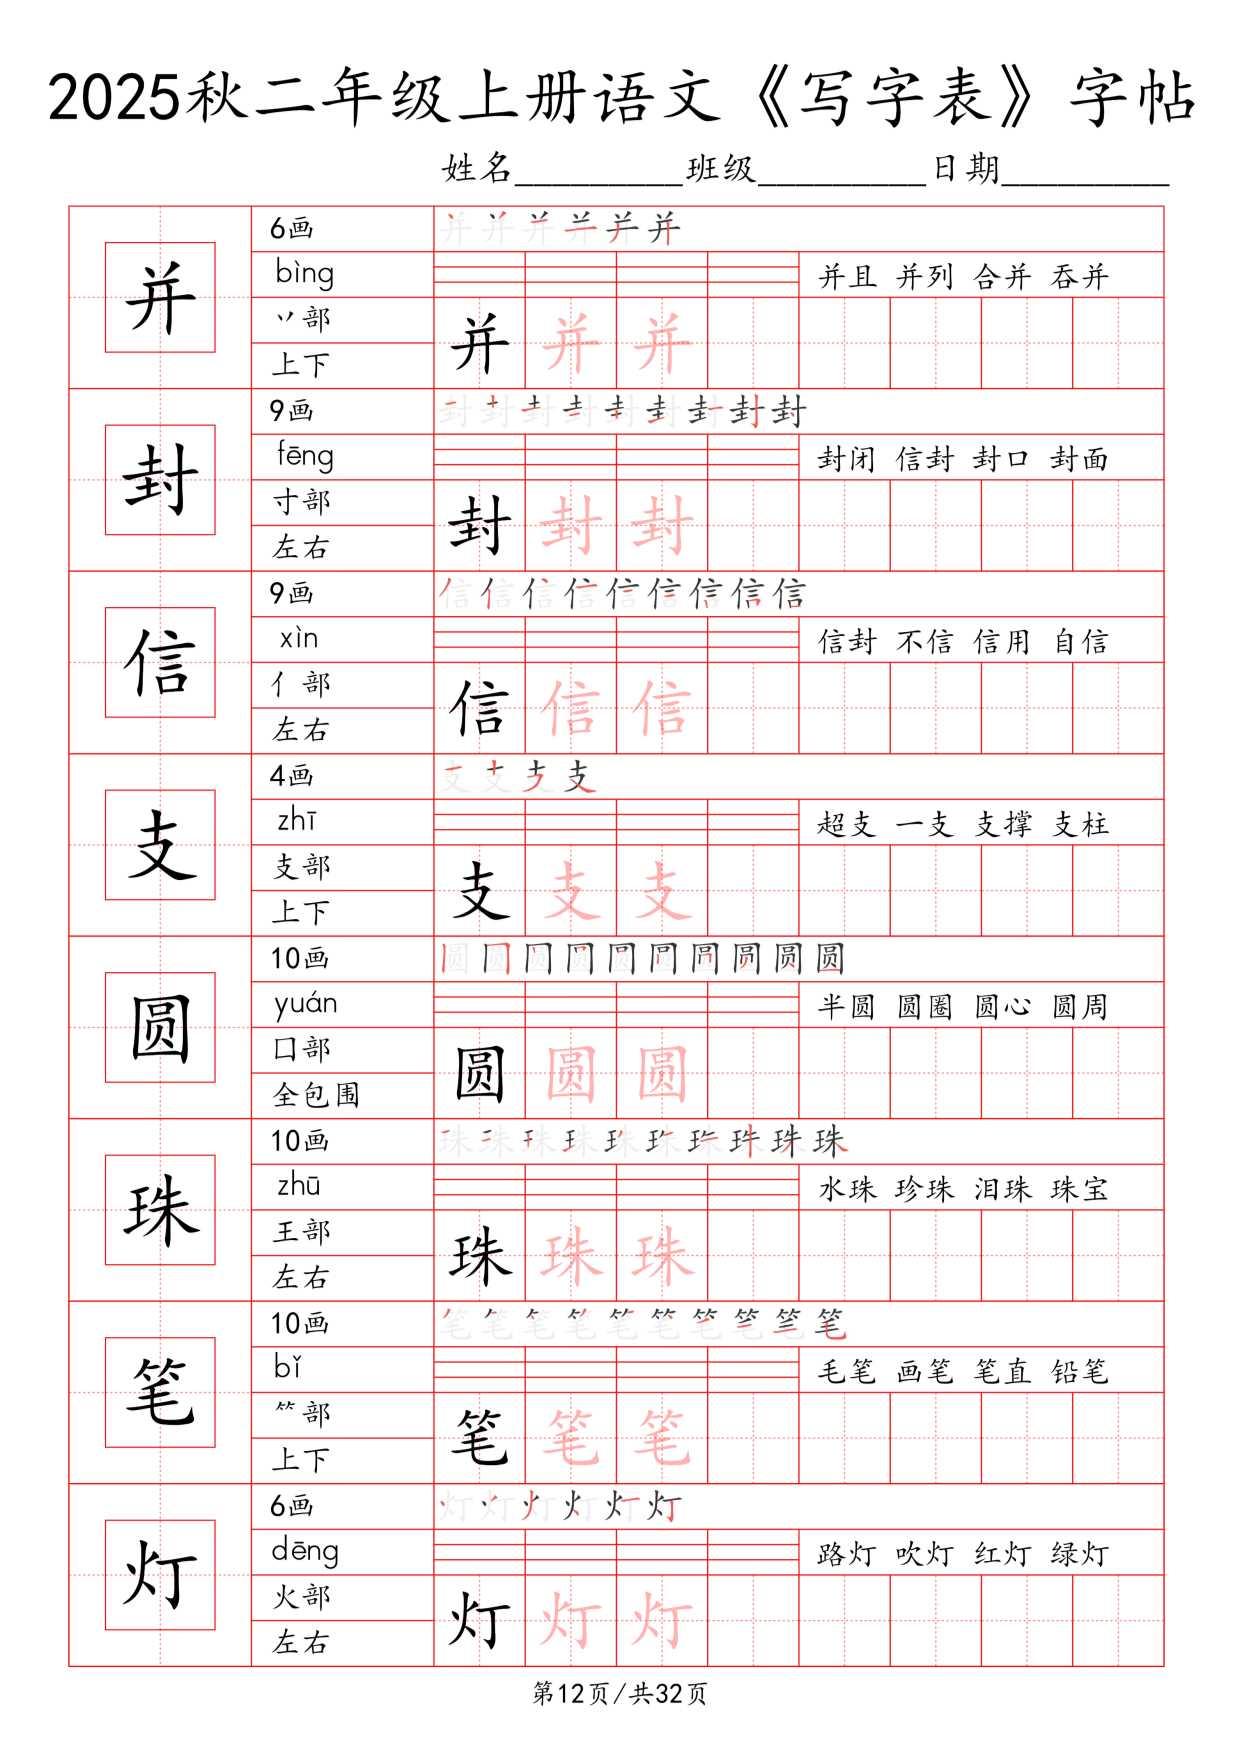 2025秋二年级上册语文《写字表》字帖
姓名_________班级_________日期_________
并
6画
并并并并并并
bìng
并且 并列 合并 吞并
丷部
并并并
上下
封
9画
封封封封封封封封封
fēng
封闭 信封 封口 封面
寸部
封封封
左右
信
9画
信信信信信信信信信
xìn
信封 不信 信用 自信
亻部
信信信
左右
支
4画
支支支支
zhī
超支 一支 支撑 支柱
支部
支支支
上下
圆
10画
圆圆圆圆圆圆圆圆圆圆
yuán
半圆 圆圈 圆心 圆周
囗部
圆圆圆
全包围
珠
10画
珠珠珠珠珠珠珠珠珠珠
zhū
水珠 珍珠 泪珠 珠宝
王部
珠珠珠
左右
笔
10画
笔笔笔笔笔笔笔笔笔笔
bǐ
毛笔 画笔 笔直 铅笔
⺮部
笔笔笔
上下
灯
6画
灯灯灯灯灯灯
dēng
路灯 吹灯 红灯 绿灯
火部
灯灯灯
左右
第12页/共32页